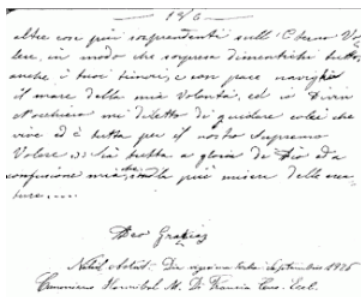 — 126 —
altre cose più sorprendenti sull'Eterno Vo-
lere, in modo che sorpresa dimentichi tutto,
anche i tuoi timori, e con pace navighi
il mare della mia Volontà, ed io Divin
Nocchiero mi diletto di guidare colei che
vive ed è tutta per il nostro Supremo
Volere. Sia tutto a gloria di Dio ed a
confusione mia, che sono la più misera delle crea-
ture.....
Deo Gratias
Nihil obstat. Die vigesima Septembris 1926
Canonicus Hannibal M. Di Francia Eccl.